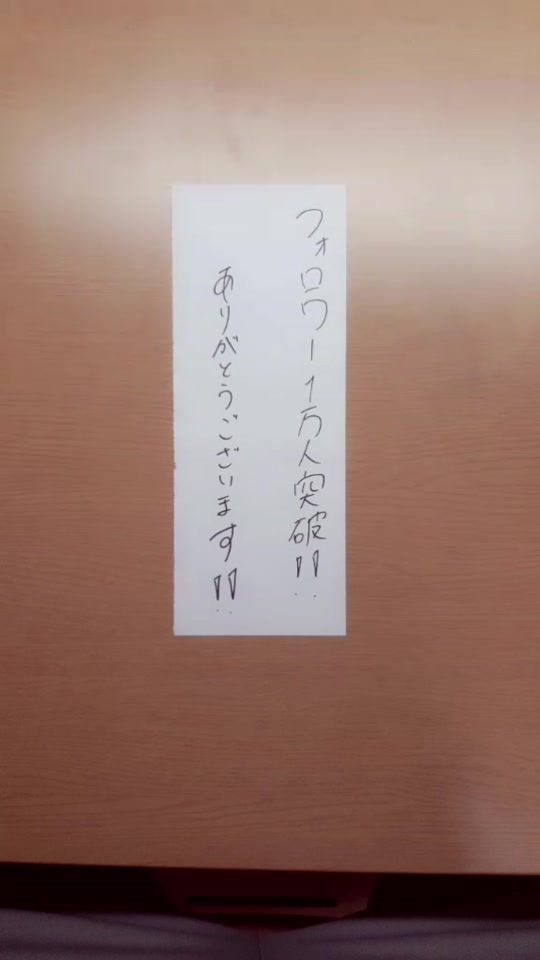 フォロワー1万人突破!!
ありがとうございます!!